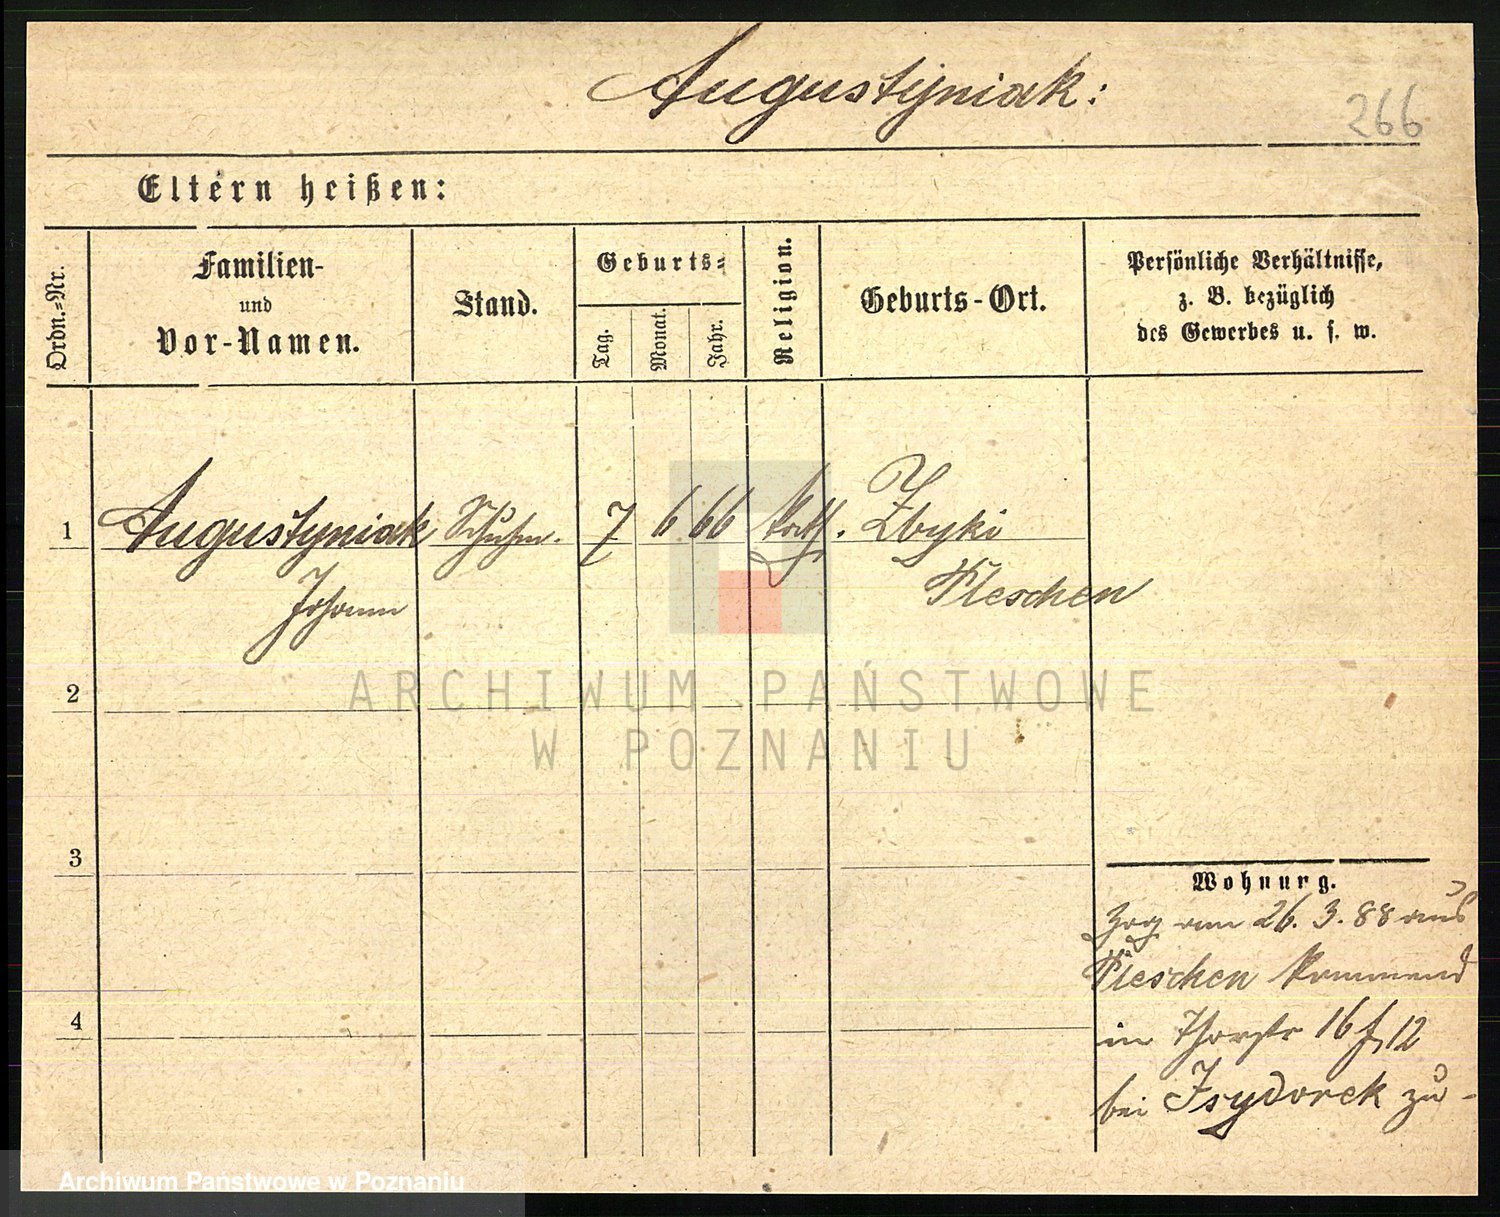 Augustyniak:
266
Eltern heißen:
Ordn.=Nr.
Familien-
und
Vor-Namen.
Stand.
Geburts=
Tag.
Monat.
Jahr.
Religion.
Geburts-Ort.
Persönliche Verhältnisse,
z. B. bezüglich
des Gewerbes u. s. w.
1 Augustyniak Schuhm. 7 6 66 kath. Zbyki
Johann Pleschen
ARCHIWUM PAŃSTWOWE
W POZNANIU
2
3
4
Wohnung.
Zog am 26. 3. 88 aus
Pleschen kommend
in Thorstr 16 12
bei Isydorek zu-
Archiwum Państwowe w Poznaniu